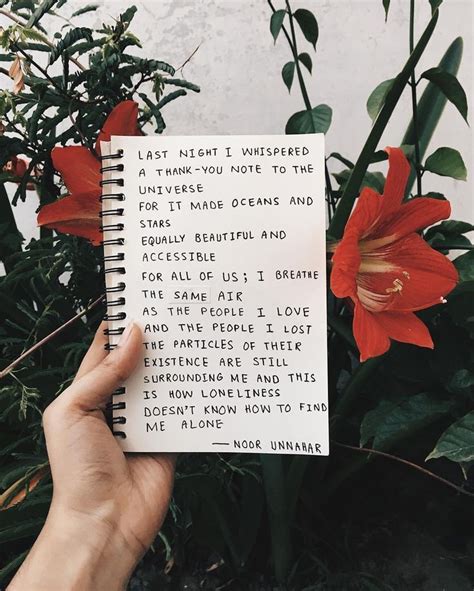 LAST NIGHT I WHISPERED
A THANK-YOU NOTE TO THE
UNIVERSE
FOR IT MADE OCEANS AND
STARS
EQUALLY BEAUTIFUL AND
ACCESSIBLE
FOR ALL OF US; I BREATHE
THE SAME AIR
AS THE PEOPLE I LOVE
AND THE PEOPLE I LOST
THE PARTICLES OF THEIR
EXISTENCE ARE STILL
SURROUNDING ME AND THIS
IS HOW LONELINESS
DOESN'T KNOW HOW TO FIND
ME ALONE
— NOOR UNNAHAR